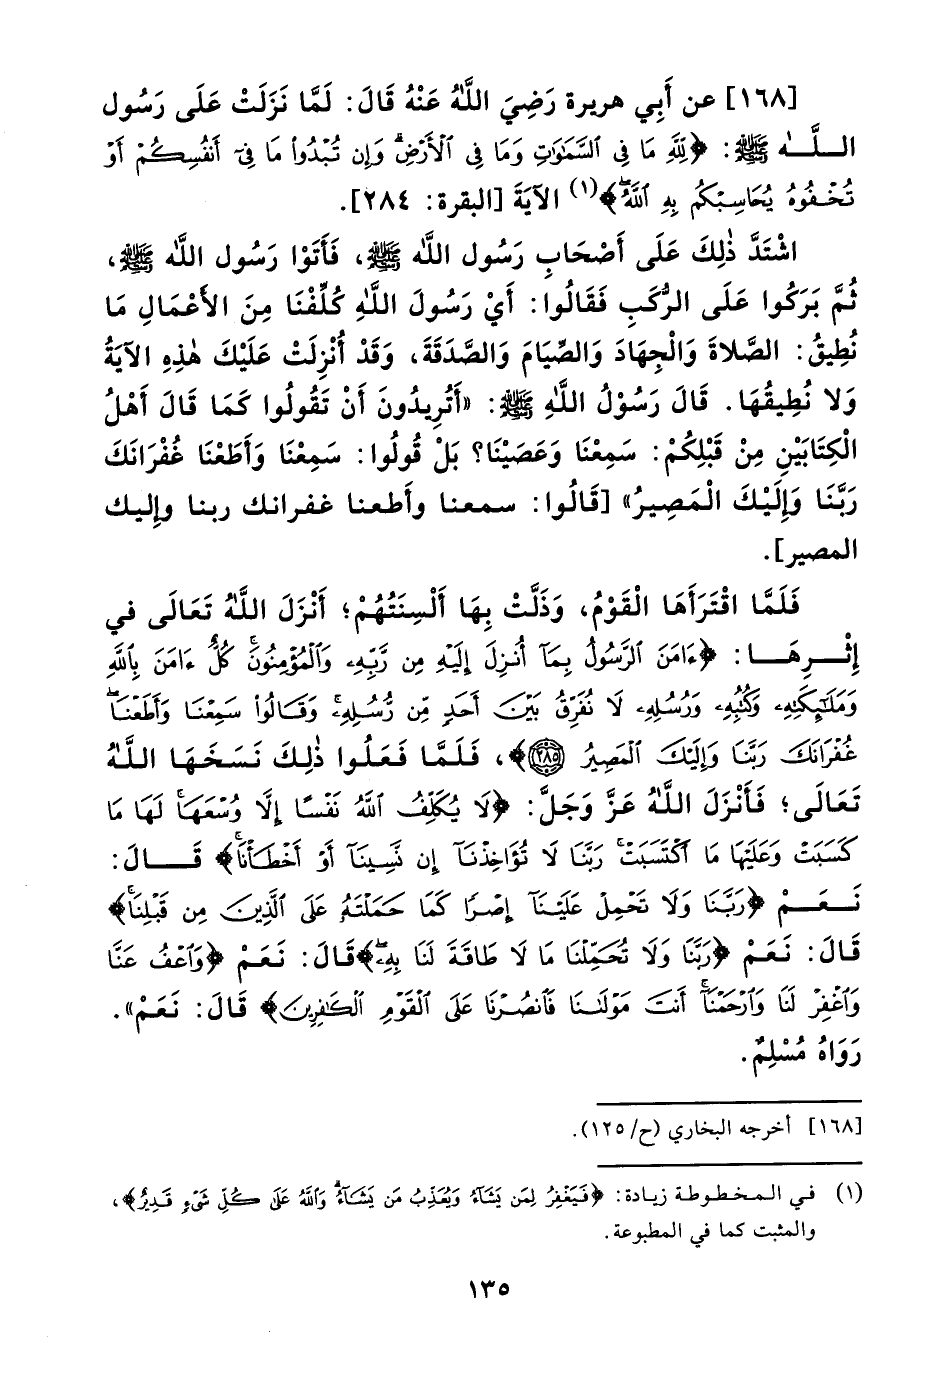 [١٦٨] عن أَبِي هريرة رَضِيَ اللَّهُ عَنْهُ قَالَ: لَمَّا نَزَلَتْ عَلَى رَسُول
اللَّه ﷺ: ﴿لِلَّهِ مَا فِي السَّمَٰوَٰتِ وَمَا فِي ٱلْأَرْضِۗ وَإِن تُبْدُوا۟ مَا فِىٓ أَنفُسِكُمْ أَوْ
تُخْفُوهُ يُحَاسِبْكُم بِهِ ٱللَّهُۖ﴾(١) الآيَةَ [البقرة: ٢٨٤].
اشْتَدَّ ذٰلِكَ عَلَى أَصْحَابِ رَسُول اللَّه ﷺ، فَأَتَوْا رَسُول اللَّه ﷺ،
ثُمَّ بَرَكُوا عَلَى الرُّكَبِ فَقَالُوا: أَيْ رَسُولَ اللَّهِ كُلِّفْنَا مِنَ الأَعْمَالِ مَا
نُطِيقُ: الصَّلاةَ وَالْجِهَادَ وَالصِّيَامَ وَالصَّدَقَةَ، وَقَدْ أُنْزِلَتْ عَلَيْكَ هٰذِهِ الآيَةُ
وَلا نُطِيقُهَا. قَالَ رَسُوْلُ اللَّهِ ﷺ: «أَتُرِيدُونَ أَنْ تَقُولُوا كَمَا قَالَ أَهْلُ
الْكِتَابَيْنِ مِنْ قَبْلِكُمْ: سَمِعْنَا وَعَصَيْنَا؟ بَلْ قُولُوا: سَمِعْنَا وَأَطَعْنَا غُفْرَانَكَ
رَبَّنَا وَإِلَيْكَ الْمَصِيرُ» [قَالُوا: سمعنا وأطعنا غفرانك ربنا وإليك
المصير].
فَلَمَّا اقْتَرَأَهَا الْقَوْمُ، وَذَلَّتْ بِهَا أَلْسِنَتُهُمْ؛ أَنْزَلَ اللَّهُ تَعَالَى في
إِثْرِهَا: ﴿ءَامَنَ ٱلرَّسُولُ بِمَآ أُنزِلَ إِلَيْهِ مِن رَّبِّهِۦ وَٱلْمُؤْمِنُونَۚ كُلٌّ ءَامَنَ بِٱللَّهِ
وَمَلَٰٓئِكَتِهِۦ وَكُتُبِهِۦ وَرُسُلِهِۦ لَا نُفَرِّقُ بَيْنَ أَحَدٍ مِّن رُّسُلِهِۦۚ وَقَالُوا۟ سَمِعْنَا وَأَطَعْنَاۖ
غُفْرَانَكَ رَبَّنَا وَإِلَيْكَ ٱلْمَصِيرُ ٢٨٥﴾، فَلَمَّا فَعَلُوا ذٰلِكَ نَسَخَهَا اللَّهُ
تَعَالَى؛ فَأَنْزَلَ اللَّهُ عَزَّ وَجَلَّ: ﴿لَا يُكَلِّفُ ٱللَّهُ نَفْسًا إِلَّا وُسْعَهَاۚ لَهَا مَا
كَسَبَتْ وَعَلَيْهَا مَا ٱكْتَسَبَتْۗ رَبَّنَا لَا تُؤَاخِذْنَآ إِن نَّسِينَآ أَوْ أَخْطَأْنَاۚ﴾ قَالَ:
نَعَمْ ﴿رَبَّنَا وَلَا تَحْمِلْ عَلَيْنَآ إِصْرًا كَمَا حَمَلْتَهُۥ عَلَى ٱلَّذِينَ مِن قَبْلِنَاۚ﴾
قَالَ: نَعَمْ ﴿رَبَّنَا وَلَا تُحَمِّلْنَا مَا لَا طَاقَةَ لَنَا بِهِۦۖ﴾ قَالَ: نَعَمْ ﴿وَٱعْفُ عَنَّا
وَٱغْفِرْ لَنَا وَٱرْحَمْنَآۚ أَنتَ مَوْلَىٰنَا فَٱنصُرْنَا عَلَى ٱلْقَوْمِ ٱلْكَٰفِرِينَ﴾ قَالَ: نَعَمْ».
رَوَاهُ مُسْلِمٌ.
[١٦٨] أخرجه البخاري (ح/١٢٥).
(١) في المخطوطة زيادة: ﴿فَيَغْفِرُ لِمَن يَشَآءُ وَيُعَذِّبُ مَن يَشَآءُۗ وَٱللَّهُ عَلَىٰ كُلِّ شَىْءٍ قَدِيرٌ﴾،
والمثبت كما في المطبوعة.
١٣٥